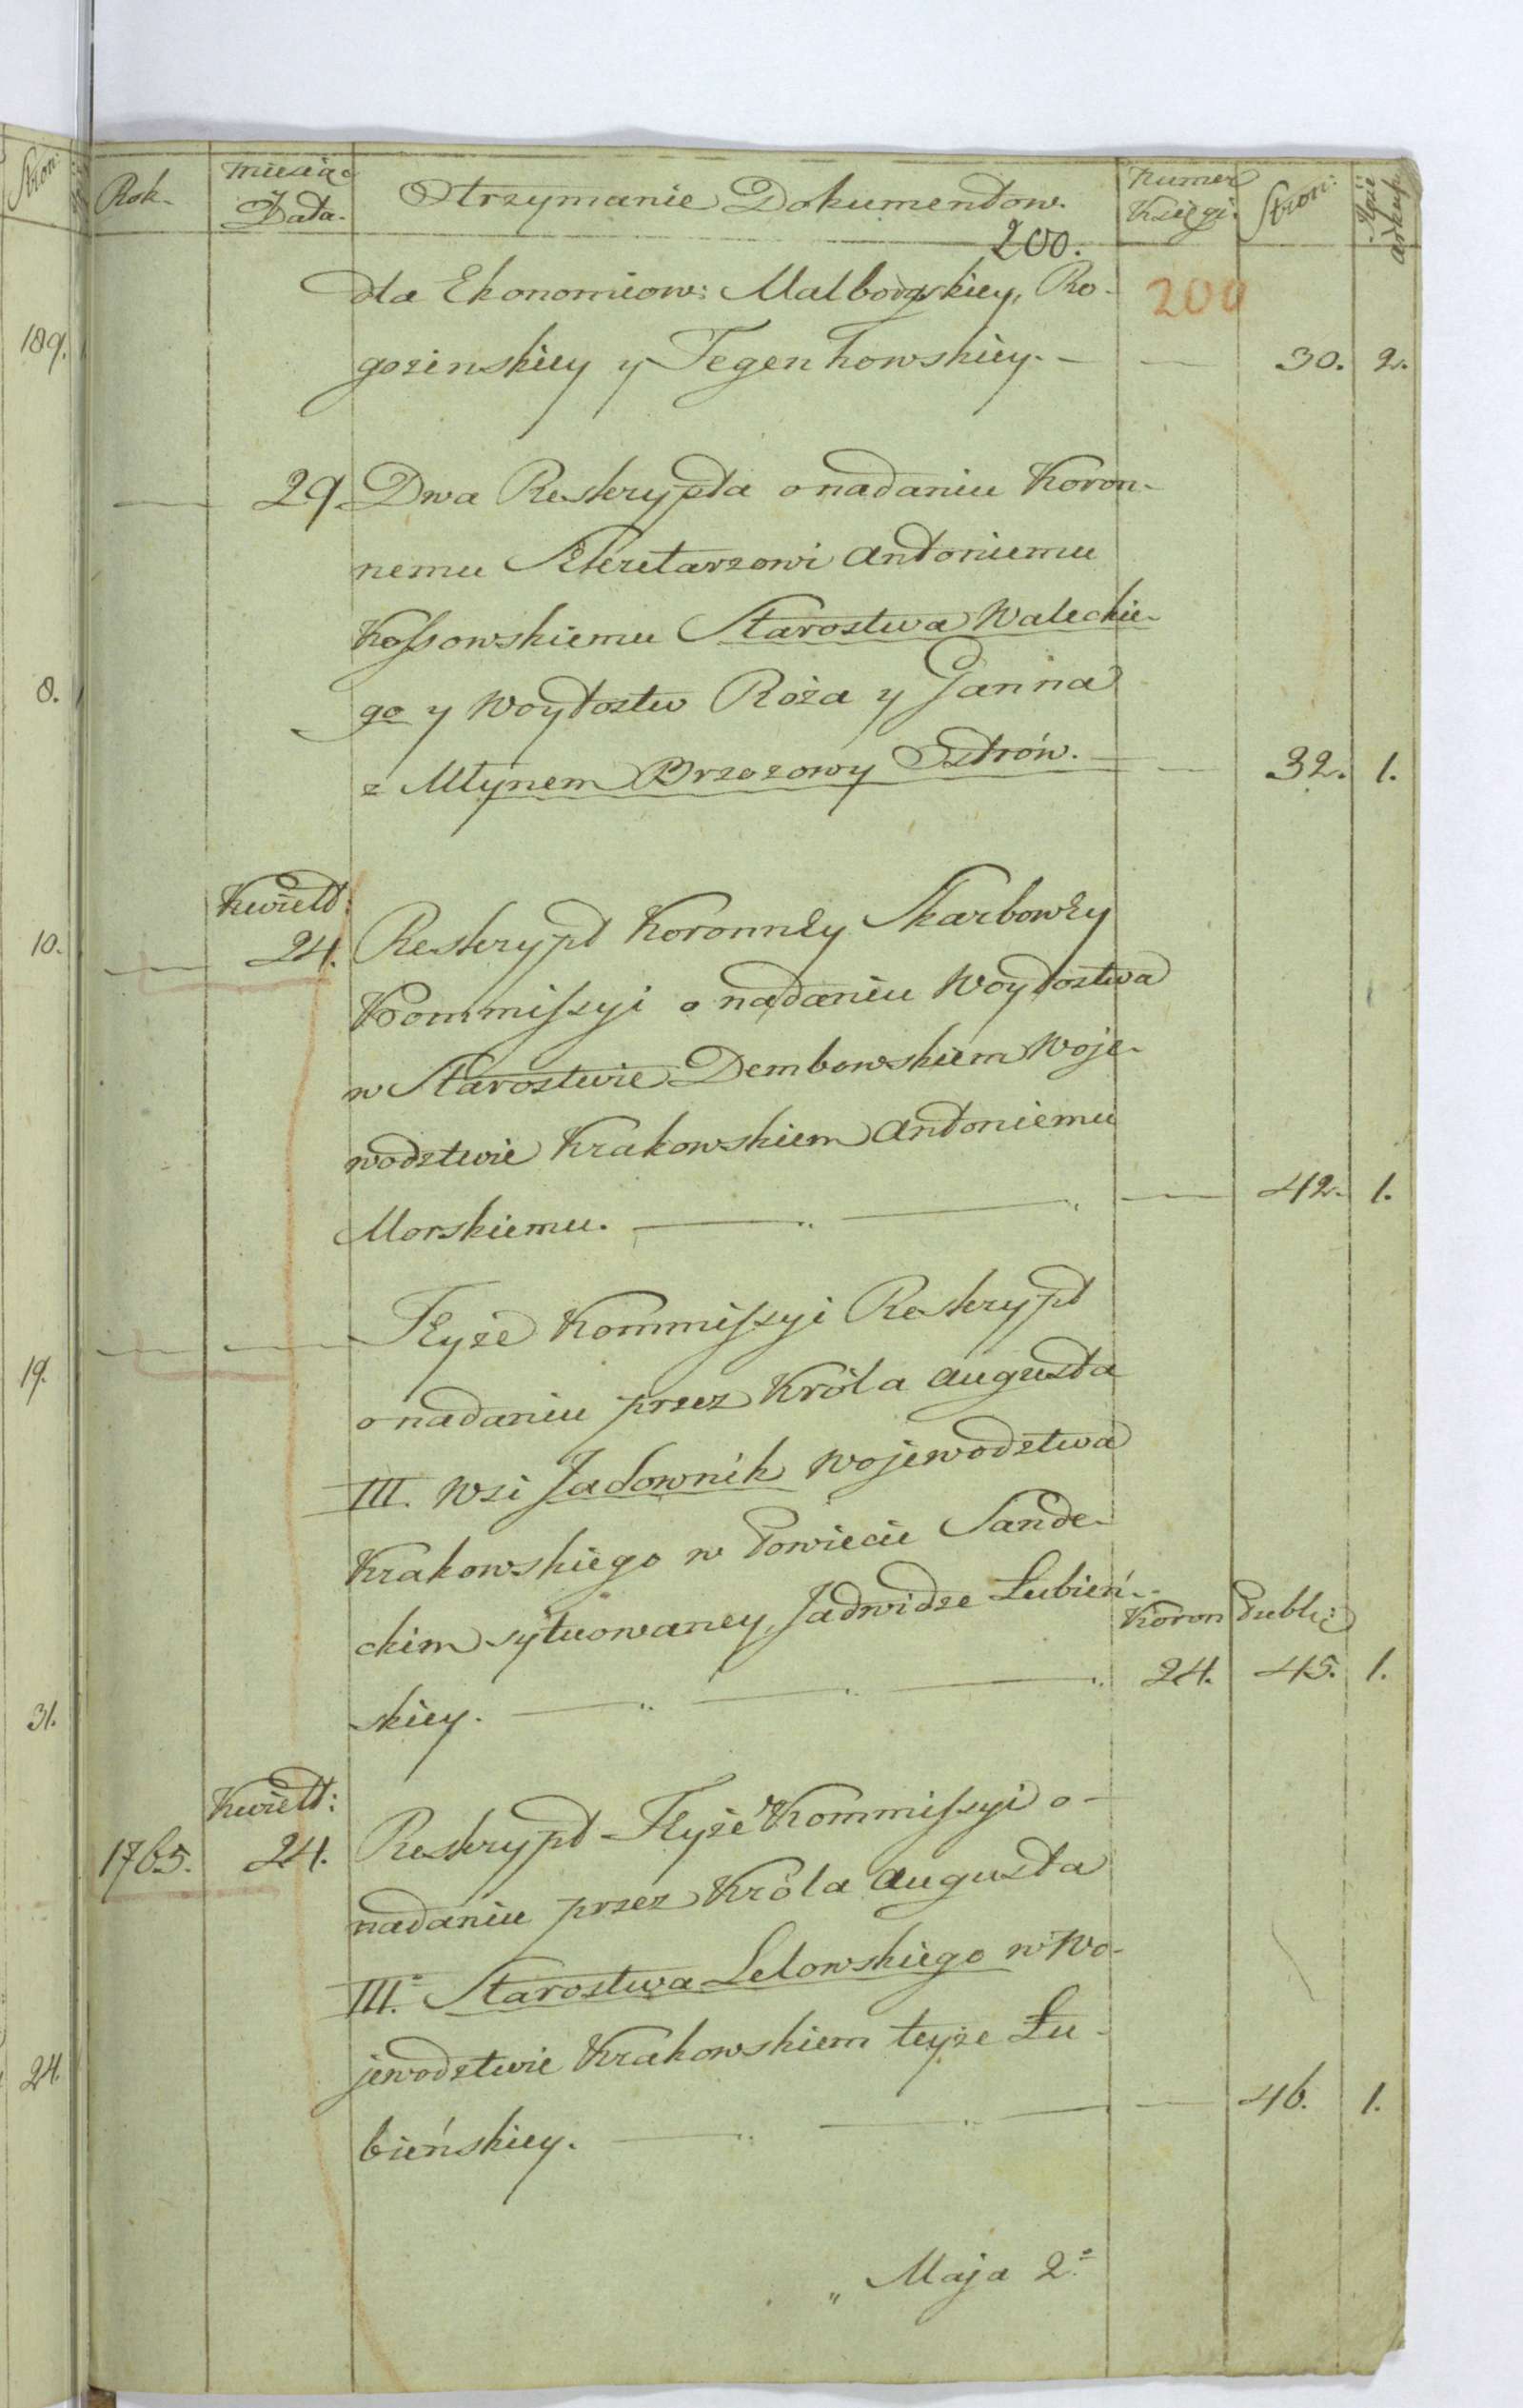 Stron:
189.
8.
10.
19.
31.
24.
Rok.
miesiąc
Data.
Otrzymanie Dokumentow.
Numer
Księgi.
Stron:
arkusz
200.
200
dla Ekonomiow: Malborgskiey, Ro-
gozinskiey y Tegenhowskiey. — — 30. 2.
— 29. Dwa Reskrypta o nadaniu Koron-
nemu Sekretarzowi Antoniemu
Kossowskiemu Starostwa Waleckie-
go y Woytostw Róża y Janna
z Młynem Brzozowy Ostrów. — — 32. 1.
Kwiet:
— 24. Reskrypt Koronnéy Skarbowéy
Kommissyi o nadaniu Woytostwa
w Starostwie Dembowskiem Woje-
wodztwie Krakowskiem Antoniemu
Morskiemu. — — — 42. 1.
— — Téyże Kommissyi Reskrypt
o nadaniu przez Króla Augusta
III. Wsi Jadownik Wojewodztwa
Krakowskiego w Powiecie Sande-
ckim sytuowaney, Jadwidze Łubień-
Koron Publ:
skiey. — — — 24. 45. 1.
Kwiet:
1765. 24. Reskrypt Téyże Kommissyi o-
nadaniu przez Króla Augusta
III. Starostwa Lelowskiego w Wo-
jewodztwie Krakowskiem teyże Łu-
bieńskiey. — — — — 46. 1.
„ Maja 2.